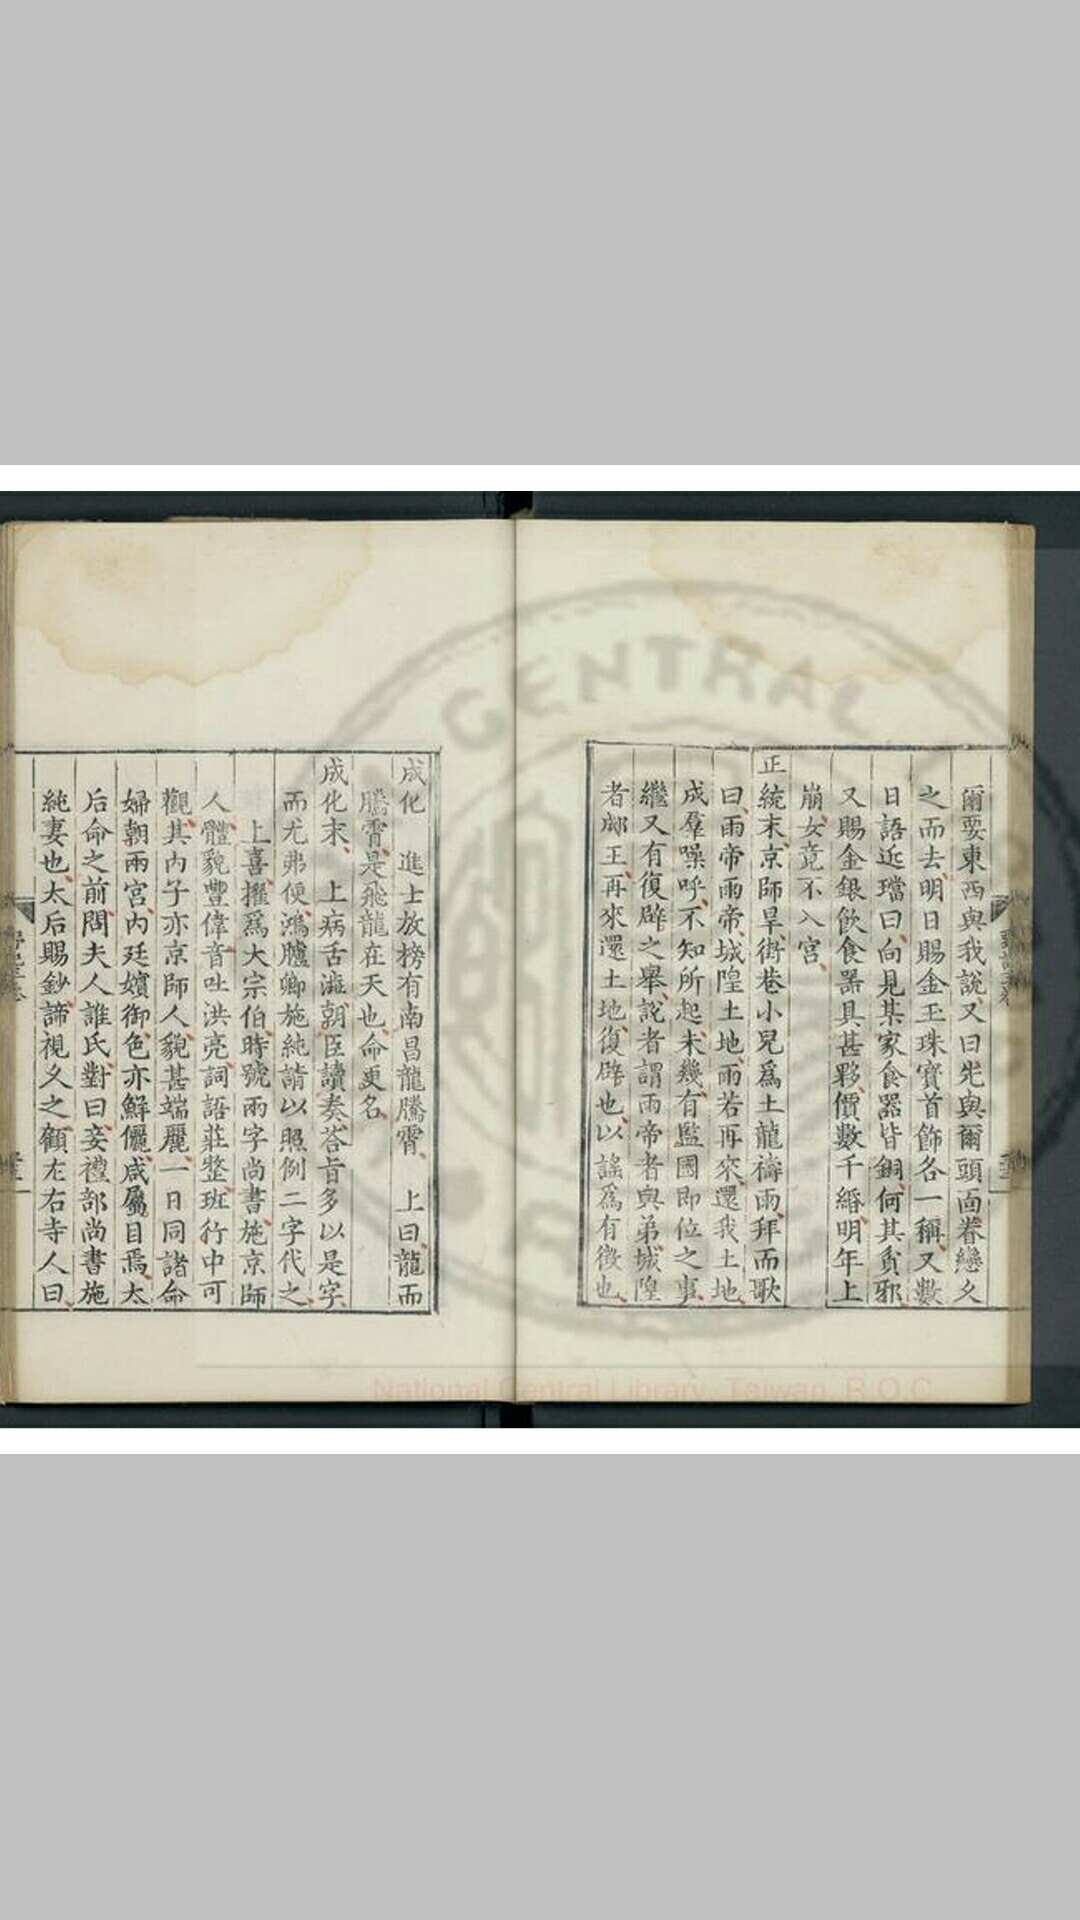 爾要東西與我說又曰先與爾頭面眷戀久
之而去明日賜金玉珠寶首飾各一稱又數
日語近璫曰向見某家食器皆銅何其貧邪
又賜金銀飲食器具甚夥價數千緡明年上
崩女竟不入宮
正統末京師旱街巷小兒爲土龍禱雨拜而歌
曰雨帝雨帝城隍土地雨若再來還我土地
成羣噪呼不知所起未幾有監國即位之事
繼又有復辟之舉說者謂雨帝者與弟城隍
者郕王再來還土地復辟也以謠爲有徵也
成化 進士放榜有南昌龍騰霄 上曰龍而
騰霄是飛龍在天也命更名
成化末 上病舌澁朝臣讀奏荅旨多以是字
而尤弗便鴻臚卿施純請以照例二字代之
上喜擢爲大宗伯時號兩字尚書施京師
人體貌豐偉音吐洪亮詞語莊整班行中可
觀其內子亦京師人貌甚端麗一日同諸命
婦朝兩宮內廷嬪御色亦鮮儷咸屬目焉太
后命之前問夫人誰氏對曰妾禮部尚書施
純妻也太后賜鈔諦視久之顧左右寺人曰
CENTRAL
National Central Library, Taiwan, R.O.C.